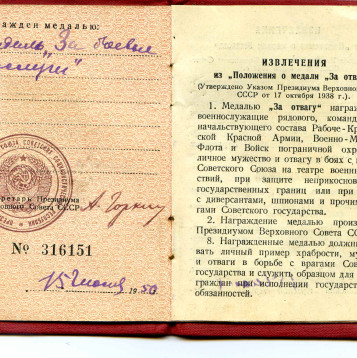 ажден медалью:
„За боевые
заслуги"
СОЮЗА СОВЕТСКИХ СОЦИАЛИСТИЧЕСКИХ
ретарь Президиума
вного Совета СССР А. Горкин
№ 316151
15 1950
ИЗВЛЕЧЕНИЯ
из „Положения о медали „За отва
(Утверждено Указом Президиума Верховно
СССР от 17 октября 1938 г.)
1. Медалью „За отвагу" награж
военнослужащие рядового, команд
начальствующего состава Рабоче-Кр
ской Красной Армии, Военно-М
Флота и Войск пограничной охр
личное мужество и отвагу в боях с
Советского Союза на театре воен
ствий, при защите неприкоснов
государственных границ или при
с диверсантами, шпионами и прочим
гами Советского государства.
2. Награждение медалью произ
Президиумом Верховного Совета СС
8. Награжденные медалью должн
вать личный пример храбрости, му
и отваги в борьбе с врагами Сов
государства и служить образцом для
граждан при исполнении государст
обязанностей.